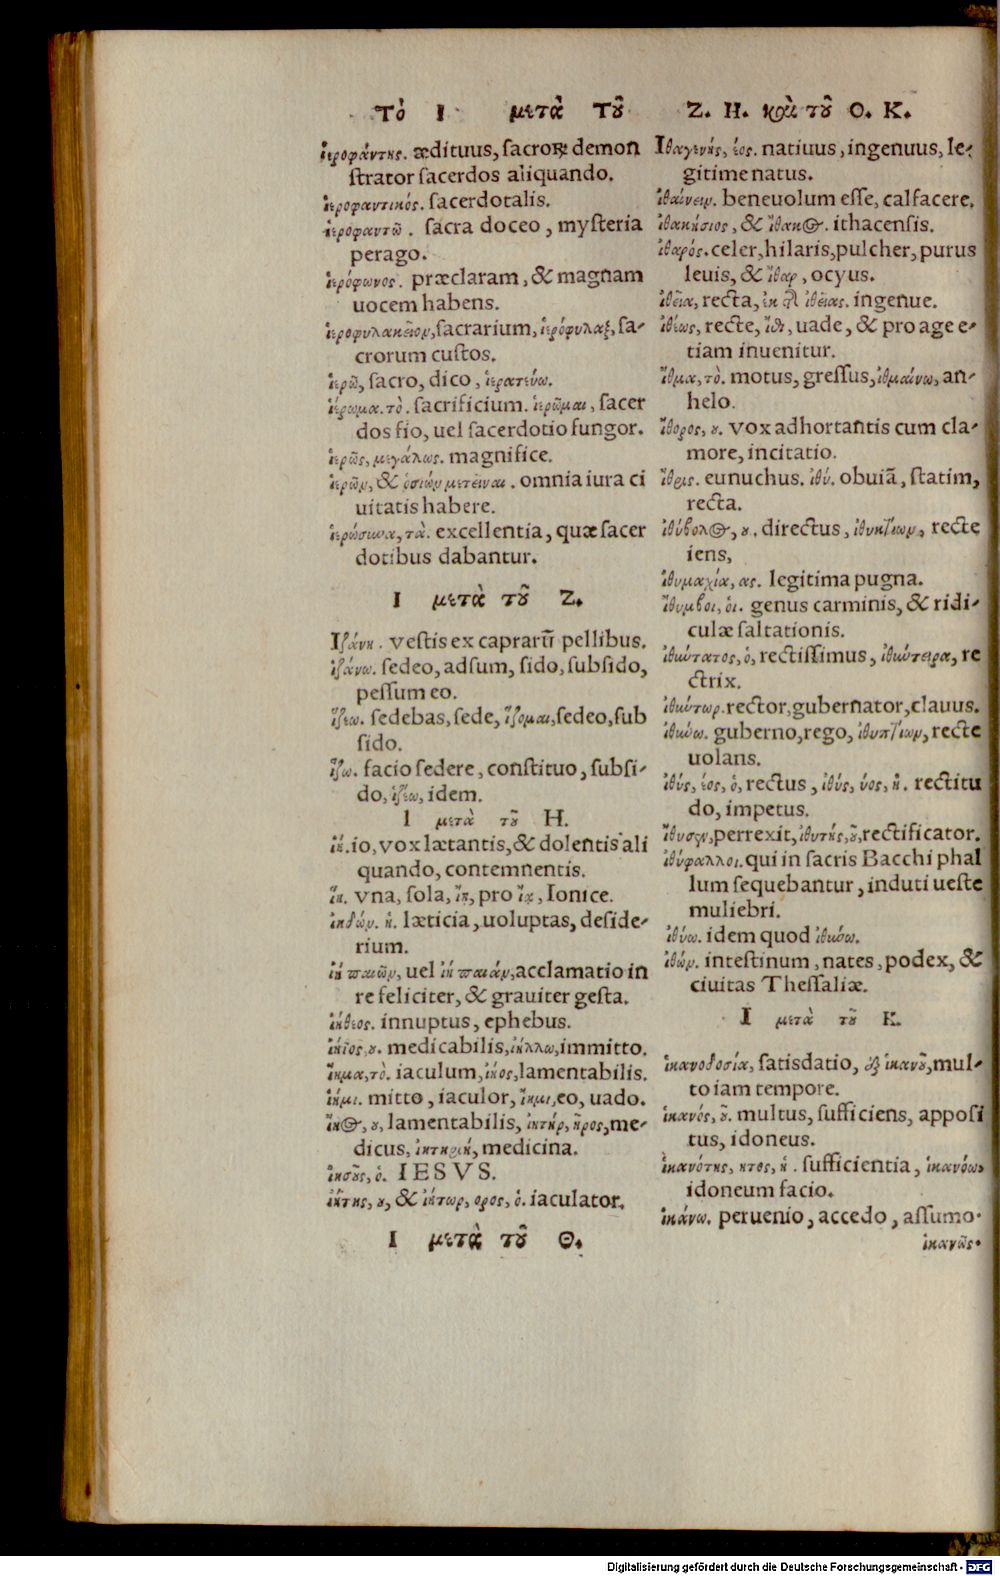 Τὸ Ι μετὰ Τοῦ Ζ. Η. καὶ τοῦ Θ. Κ.
ἱεροφάντης. ædituus, sacrorꝝ demon
strator sacerdos aliquando.
ἱεροφαντικός. sacerdotalis.
ἱεροφαντῶ. sacra doceo, mysteria
perago.
ἱερόφωνος. præclaram, & magnam
uocem habens.
ἱεροφυλακεῖον, sacrarium, ἱερόφυλαξ, sa-
crorum custos.
ἱερῶ, sacro, dico, ἱερατεύω.
ἱέρωμα. τὸ. sacrificium. ἱερῶμαι, sacer
dos fio, uel sacerdotio fungor.
ἱερῶς, μεγάλως. magnifice.
ἱερῶν, & ὁσιῶν μετεῖναι. omnia iura ci
uitatis habere.
ἱερώσυνα, τὰ. excellentia, quæ sacer
dotibus dabantur.
Ι μετὰ τοῦ Ζ.
Ιζάνη. vestis ex caprarū pellibus.
ἱζάνω. sedeo, adsum, sido, subsido,
pessum eo.
ἵζεω. sedebas, sede, ἵζομαι, sedeo, sub
sido.
ἵζω. facio sedere, constituo, subsi-
do, ἱζέω, idem.
Ι μετὰ τοῦ Η.
ἰή. io, vox lætantis, & dolentis ali
quando, contemnentis.
ἴη. vna, sola, ἴῃ, pro ἴᾳ, Ionice.
ἰηδών. ἡ. læticia, uoluptas, deside-
rium.
ἰὴ παιῶν, uel ἰὴ παιάν, acclamatio in
re feliciter, & grauiter gesta.
ἰήθεος. innuptus, ephebus.
ἰήϊος, ου. medicabilis, ἰήλλω, immitto.
ἵημα, τὸ. iaculum, ἰήος, lamentabilis.
ἵημι. mitto, iaculor, ἵημι, eo, uado.
ἴηος, ου, lamentabilis, ἰητήρ, ῆρος, me-
dicus, ἰητηρίη, medicina.
ἰησοῦς, ὁ. IESVS.
ἰήτης, ου, & ἰήτωρ, ορος, ὁ. iaculator.
Ι μετὰ τοῦ Θ.
Ιθαγενής, έος. natiuus, ingenuus, le-
gitime natus.
ἰθαίνειν. beneuolum esse, calfacere.
ἰθακήσιος, & ἴθακος. ithacensis.
ἰθαρός. celer, hilaris, pulcher, purus
leuis, & ἴθαρ, ocyus.
ἰθεῖα, recta, ἐκ τῆς ἰθείας. ingenue.
ἰθέως, recte, ἴθι, uade, & pro age e-
tiam inuenitur.
ἴθμα, τὸ. motus, gressus, ἰθμαίνω, an-
helo.
ἴθορος, ου. vox adhortantis cum cla-
more, incitatio.
ἴθρις. eunuchus. ἰθύ. obuiā, statim,
recta.
ἰθύβολος, ου. directus, ἰθυκτίων, recte
iens,
ἰθυμαχία, ας. legitima pugna.
ἴθυμβοι, οἱ. genus carminis, & ridi-
culæ saltationis.
ἰθύντατος, ὁ, rectissimus, ἰθύντειρα, re
ctrix.
ἰθύντωρ. rector, gubernator, clauus.
ἰθύνω. guberno, rego, ἰθυπτίων, recte
uolans.
ἰθύς, έος, ὁ, rectus, ἰθύς, ύος, ἡ. rectitu
do, impetus.
ἴθυσεν, perrexit, ἰθυτής, οῦ, rectificator.
ἰθύφαλλοι. qui in sacris Bacchi phal
lum sequebantur, induti ueste
muliebri.
ἰθύω. idem quod ἰθύνω.
ἰθών. intestinum, nates, podex, &
ciuitas Thessaliæ.
Ι μετὰ τοῦ Κ.
ἱκανοδοσία, satisdatio, ἐξ ἱκανοῦ, mul-
to iam tempore.
ἱκανός, οῦ. multus, sufficiens, apposi
tus, idoneus.
ἱκανότης, ητος, ἡ. sufficientia, ἱκανόω,
idoneum facio.
ἱκάνω. peruenio, accedo, assumo.
ἱκανῶς.
Digitalisierung gefördert durch die Deutsche Forschungsgemeinschaft - DFG